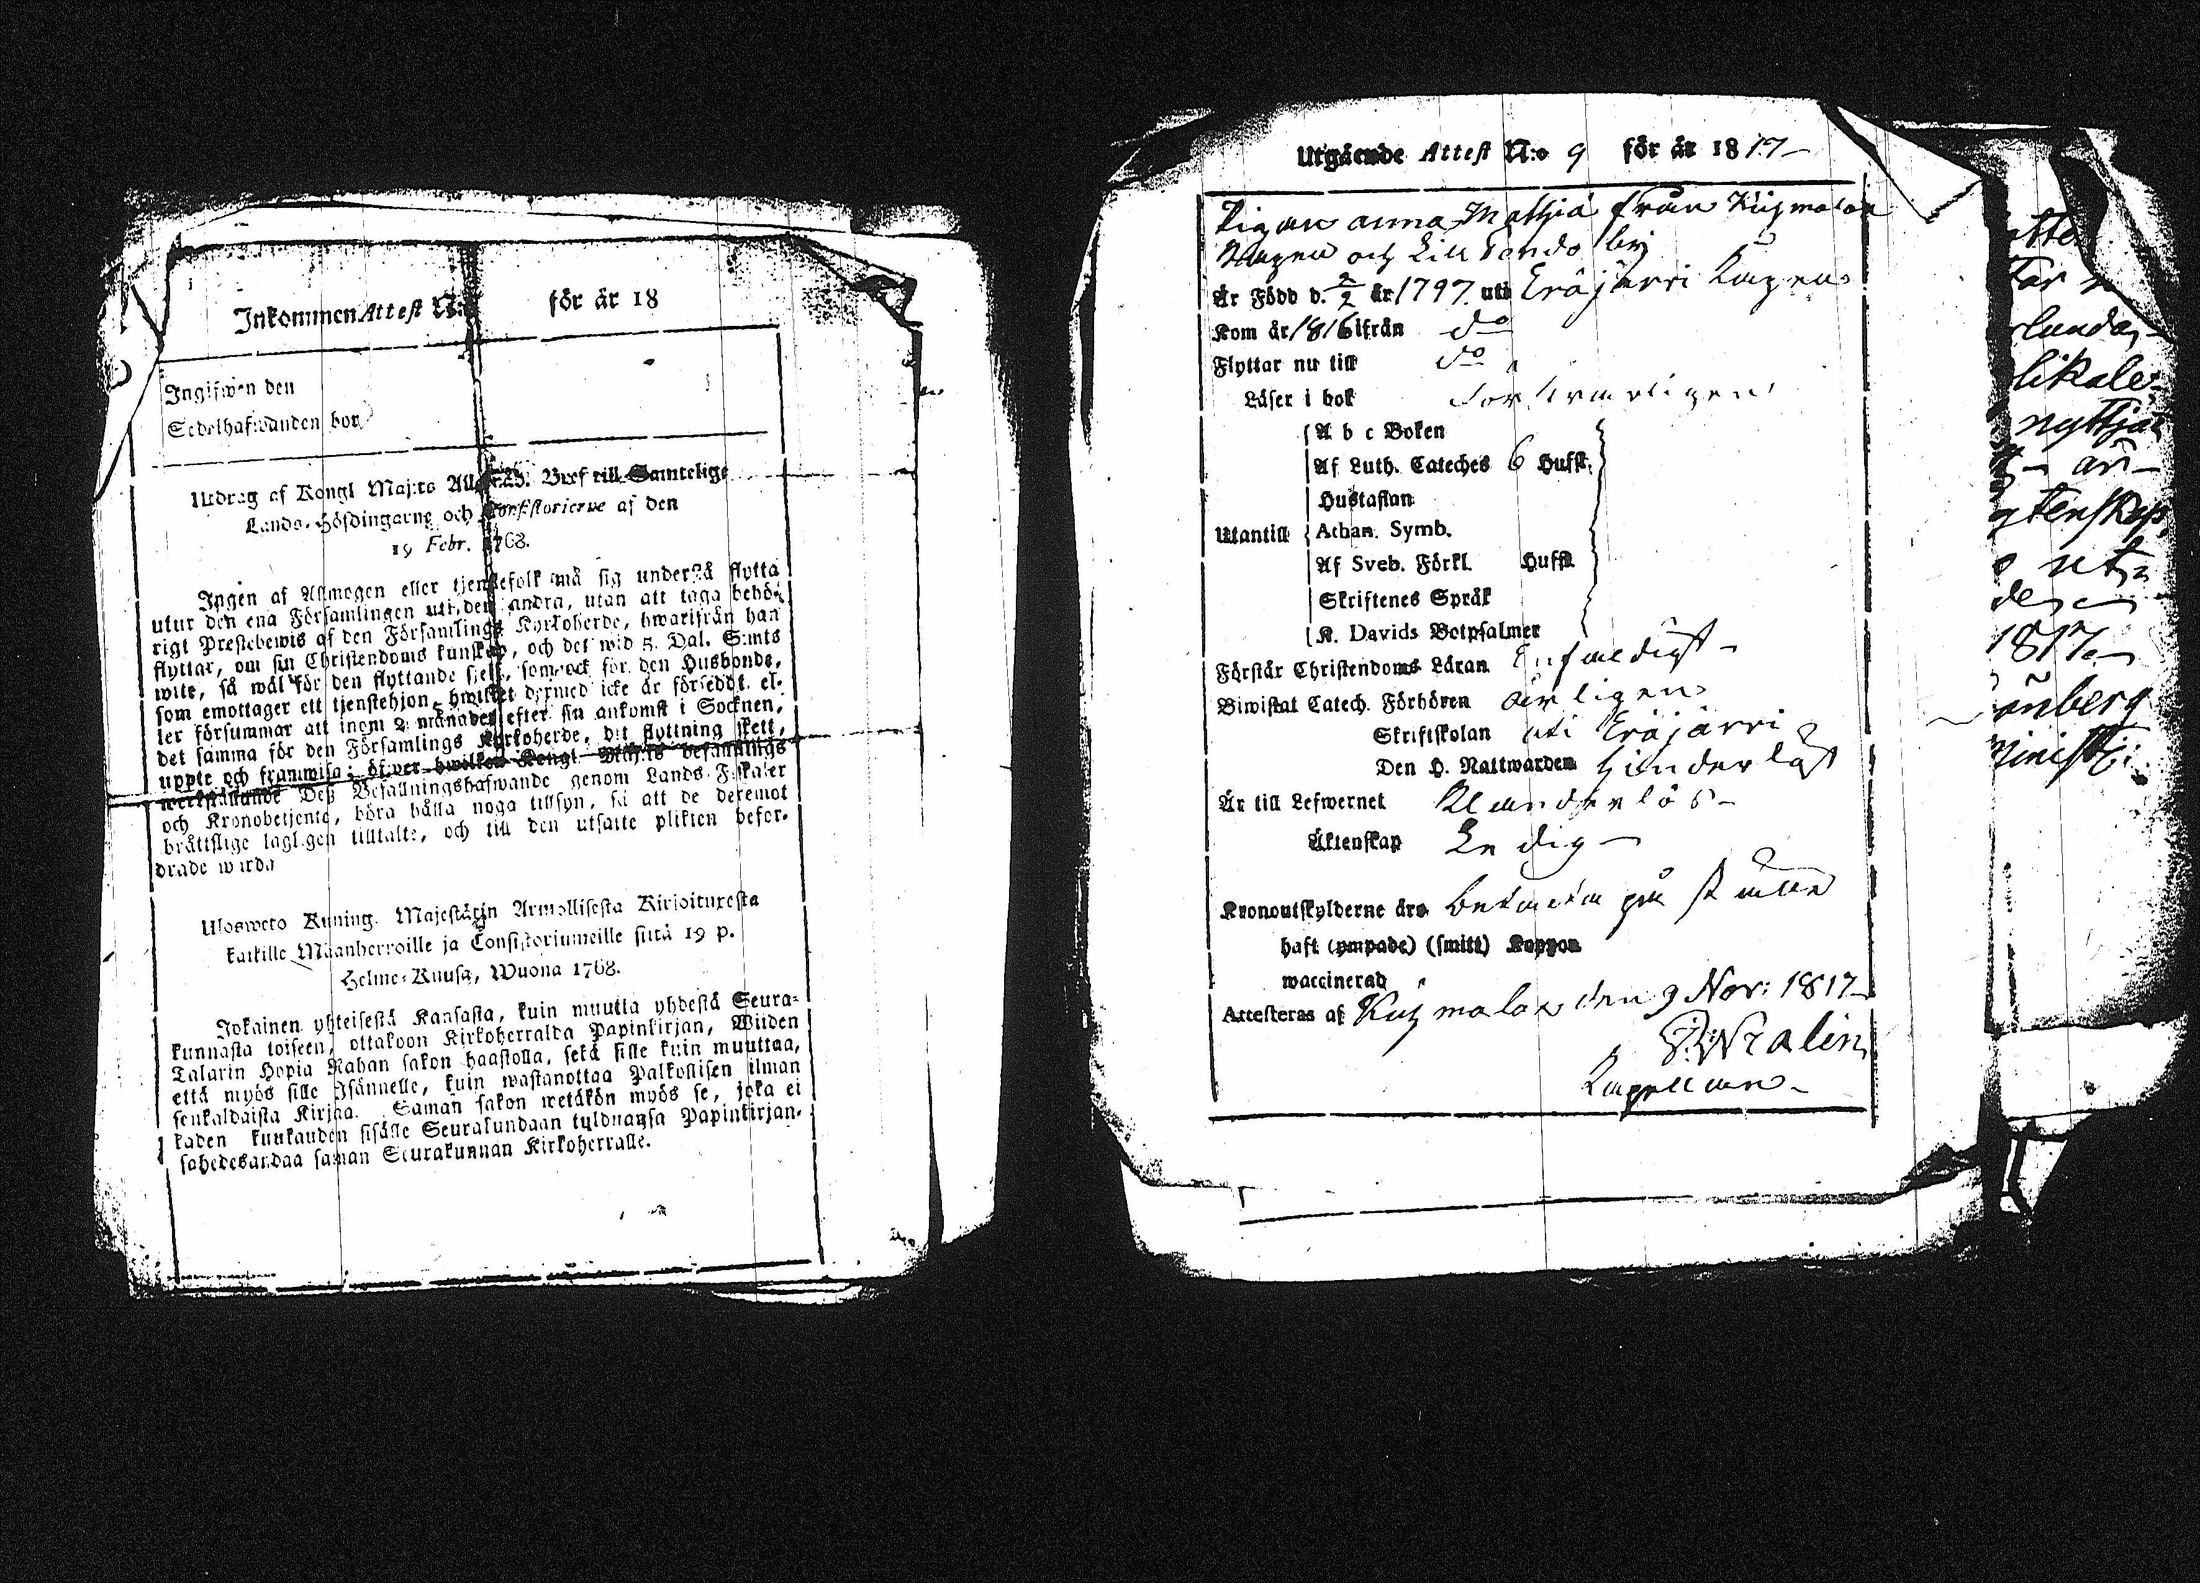 Inkommen Attest N:o för år 18
Ingifwen den
Sedelhafwanden bor
Utdrag af Kongl Maj:ts Allernåd. Bref till Samtelige
Lands-Höfdingarne och Consistorierne af den
19 Febr. 1768.
Ingen af Allmogen eller tjenstefolk må sig understå flytta
utur den ena Församlingen uti den andra, utan att taga behö-
rigt Prestebewis af den Församlings Kyrkoherde, hwarifrån han
flyttar, om sin Christendoms kunskap, och det wid 5. Dal. S:mts
wite, så wäl för den flyttande sjelf, som ock för den Husbonde,
som emottager ett tjenstehjon, hwilket dermed icke är försedt, el-
ler försummar att inom 2 månader efter sin ankomst i Socknen,
det samma för den Församlings Kyrkoherde, dit flyttning skett,
uppte och framwisa; öfwer hwilken Kongl. Maj:ts befallnings
werkställande Deß Befallningshafwande genom Lands-Fiskaler
och Kronobetjente, böra hålla noga tillsyn, så att de deremot
bråttslige lagligen tilltalte, och till den utsatte plikten befor-
drade warda
Ulosweto Kuning. Majestätin Armollisesta Kirjoituxesta
kaikille Maanherroille ja Consistoriumeille siitä 19 p.
Helme-Kuusa, Wuona 1768.
Jokainen yhteisestä Kansasta, kuin muutta yhdestä Seura-
kunnasta toiseen, ottakoon Kirkoherralda Papinkirjan, Wiiden
Talarin Hopia Rahan sakon haastolla, sekä sille kuin muuttaa,
että myös sille Isännelle, kuin wastanottaa Palkollisen ilman
senkaldaista Kirjaa. Saman sakon wetäkön myös se, joka ei
kaden kuukauden sisälle Seurakundaan tulduansa Papinkirjan-
sahedesandaa saman Seurakunnan Kirkoherralle.
Utgående Attest N:o 9 för år 1817
Pigan anna Mathiä från Kuhmalax
Kapen och Lill Pondo bÿ
Är Född d. 2/2 år 1797 uti Eräjärvi Kapen
Kom år 1816 ifrån do
Flyttar nu till do
Läser i bok försvarligen
A b c Boken
Af Luth. Cateches 6 Hufst.
Hustaflan
Utantill Athan. Symb.
Af Sveb. Förkl. Hufst.
Skriftenes Språk
K. Davids Botpsalmer
Förstår Christendoms Läran Enfaldigt
Biwistat Catech. Förhören årligen
Skriftskolan uti Eräjärvi
Den H. Nattwarden hinderlöst
Är till Lefwernet Klanderlös
Äktenskap Ledig
Kronoutskylderne äro betalda på stelle
haft (ympade) (smitt) Koppor
waccinerad
Attesteras af Kuhmalax den 9 Nov: 1817
Wralin
Kapellan
lunda
likale-
nyttja
är
gtenskap
ut-
1817.
önberg